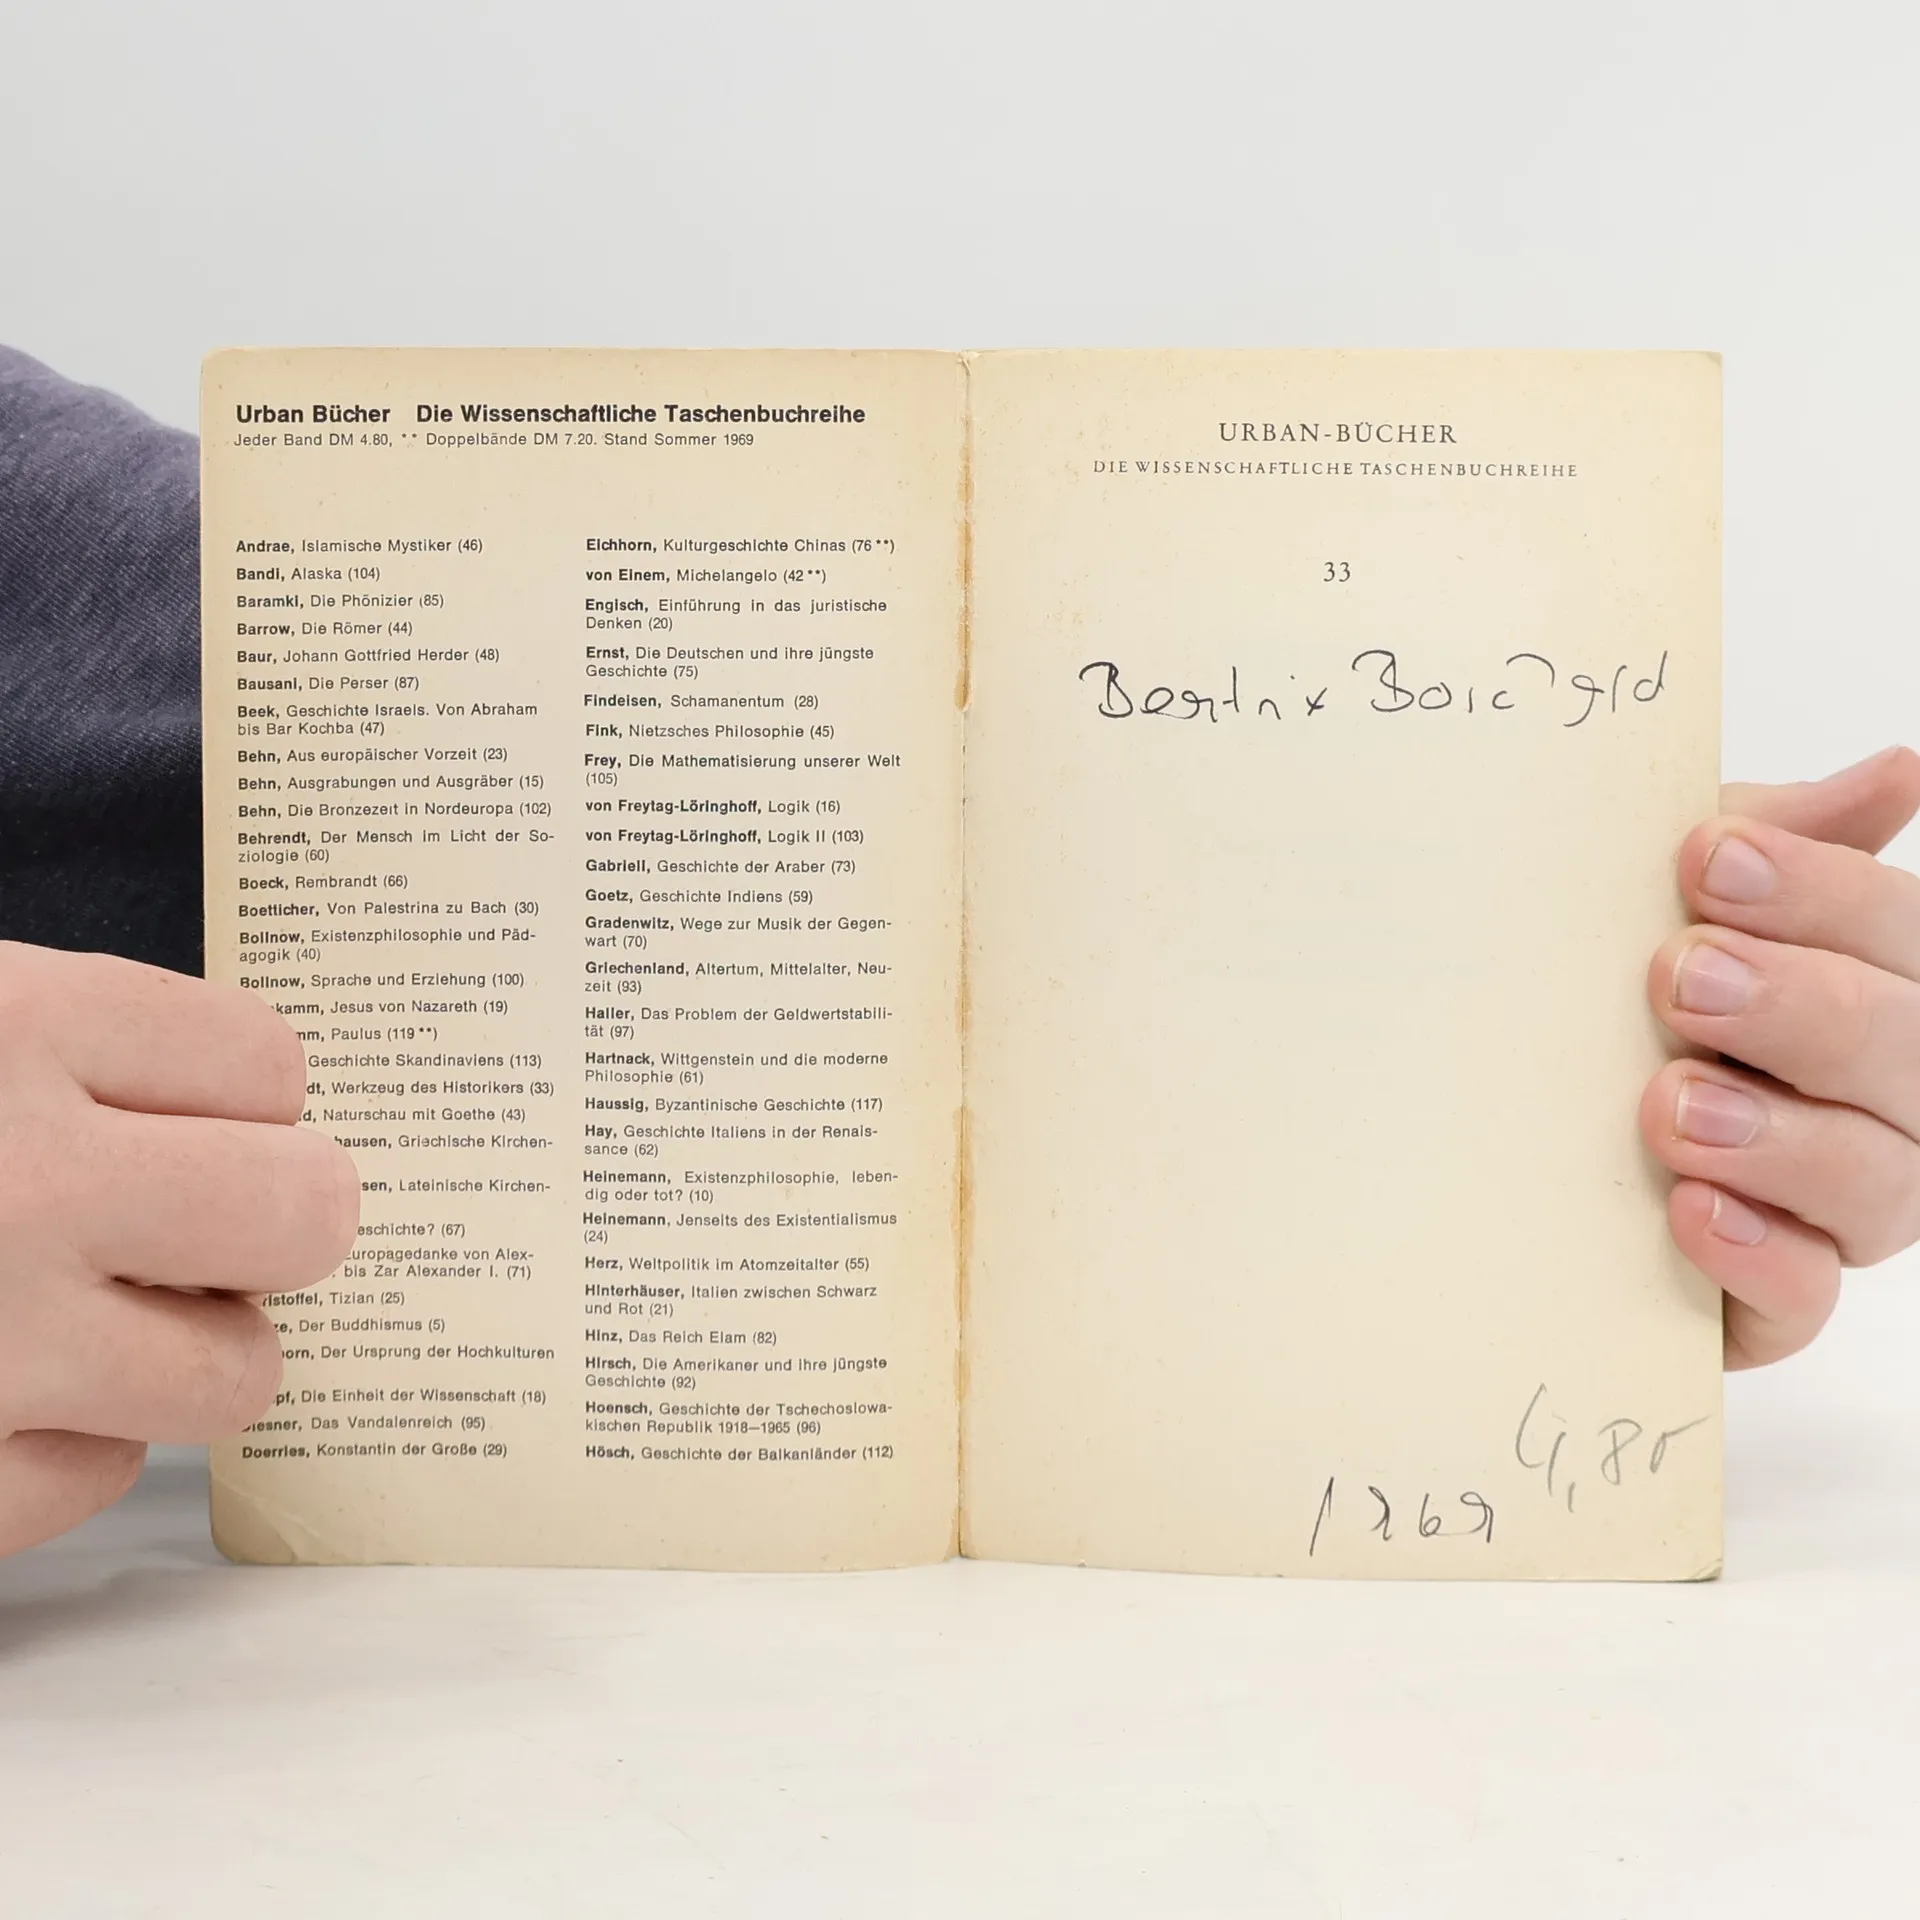 Urban Bücher Die Wissenschaftliche Taschenbuchreihe
Jeder Band DM 4.80, ** Doppelbände DM 7.20. Stand Sommer 1969
Andrae, Islamische Mystiker (46)
Bandi, Alaska (104)
Baramki, Die Phönizier (85)
Barrow, Die Römer (44)
Baur, Johann Gottfried Herder (48)
Bausani, Die Perser (87)
Beek, Geschichte Israels. Von Abraham
bis Bar Kochba (47)
Behn, Aus europäischer Vorzeit (23)
Behn, Ausgrabungen und Ausgräber (15)
Behn, Die Bronzezeit in Nordeuropa (102)
Behrendt, Der Mensch im Licht der So-
ziologie (60)
Boeck, Rembrandt (66)
Boetticher, Von Palestrina zu Bach (30)
Bollnow, Existenzphilosophie und Päd-
agogik (40)
Bollnow, Sprache und Erziehung (100)
kamm, Jesus von Nazareth (19)
mm, Paulus (119**)
Geschichte Skandinaviens (113)
dt, Werkzeug des Historikers (33)
d, Naturschau mit Goethe (43)
hausen, Griechische Kirchen-
sen, Lateinische Kirchen-
eschichte? (67)
uropagedanke von Alex-
. bis Zar Alexander I. (71)
ristoffel, Tizian (25)
ze, Der Buddhismus (5)
orn, Der Ursprung der Hochkulturen
pf, Die Einheit der Wissenschaft (18)
iesner, Das Vandalenreich (95)
Doerries, Konstantin der Große (29)
Eichhorn, Kulturgeschichte Chinas (76**)
von Einem, Michelangelo (42**)
Engisch, Einführung in das juristische
Denken (20)
Ernst, Die Deutschen und ihre jüngste
Geschichte (75)
Findeisen, Schamanentum (28)
Fink, Nietzsches Philosophie (45)
Frey, Die Mathematisierung unserer Welt
(105)
von Freytag-Löringhoff, Logik (16)
von Freytag-Löringhoff, Logik II (103)
Gabrieli, Geschichte der Araber (73)
Goetz, Geschichte Indiens (59)
Gradenwitz, Wege zur Musik der Gegen-
wart (70)
Griechenland, Altertum, Mittelalter, Neu-
zeit (93)
Haller, Das Problem der Geldwertstabili-
tät (97)
Hartnack, Wittgenstein und die moderne
Philosophie (61)
Haussig, Byzantinische Geschichte (117)
Hay, Geschichte Italiens in der Renais-
sance (62)
Heinemann, Existenzphilosophie, leben-
dig oder tot? (10)
Heinemann, Jenseits des Existentialismus
(24)
Herz, Weltpolitik im Atomzeitalter (55)
Hinterhäuser, Italien zwischen Schwarz
und Rot (21)
Hinz, Das Reich Elam (82)
Hirsch, Die Amerikaner und ihre jüngste
Geschichte (92)
Hoensch, Geschichte der Tschechoslowa-
kischen Republik 1918–1965 (96)
Hösch, Geschichte der Balkanländer (112)
URBAN-BÜCHER
DIE WISSENSCHAFTLICHE TASCHENBUCHREIHE
33
4,80
1969